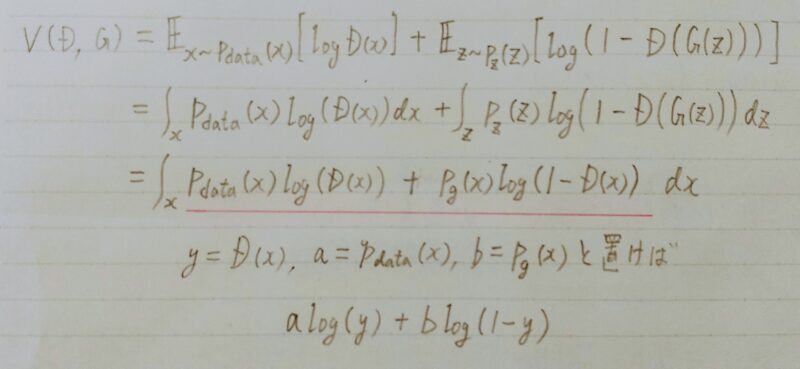 V(D, G) = 𝔼_{x~p_{data}(x)}[log D(x)] + 𝔼_{z~p_z(z)}[log(1 - D(G(z)))]
= ∫_x p_{data}(x) log(D(x)) dx + ∫_z p_z(z) log(1 - D(G(z))) dz
= ∫_x p_{data}(x) log(D(x)) + p_g(x) log(1 - D(x)) dx
y = D(x), a = p_{data}(x), b = p_g(x) と置けば
a log(y) + b log(1-y)